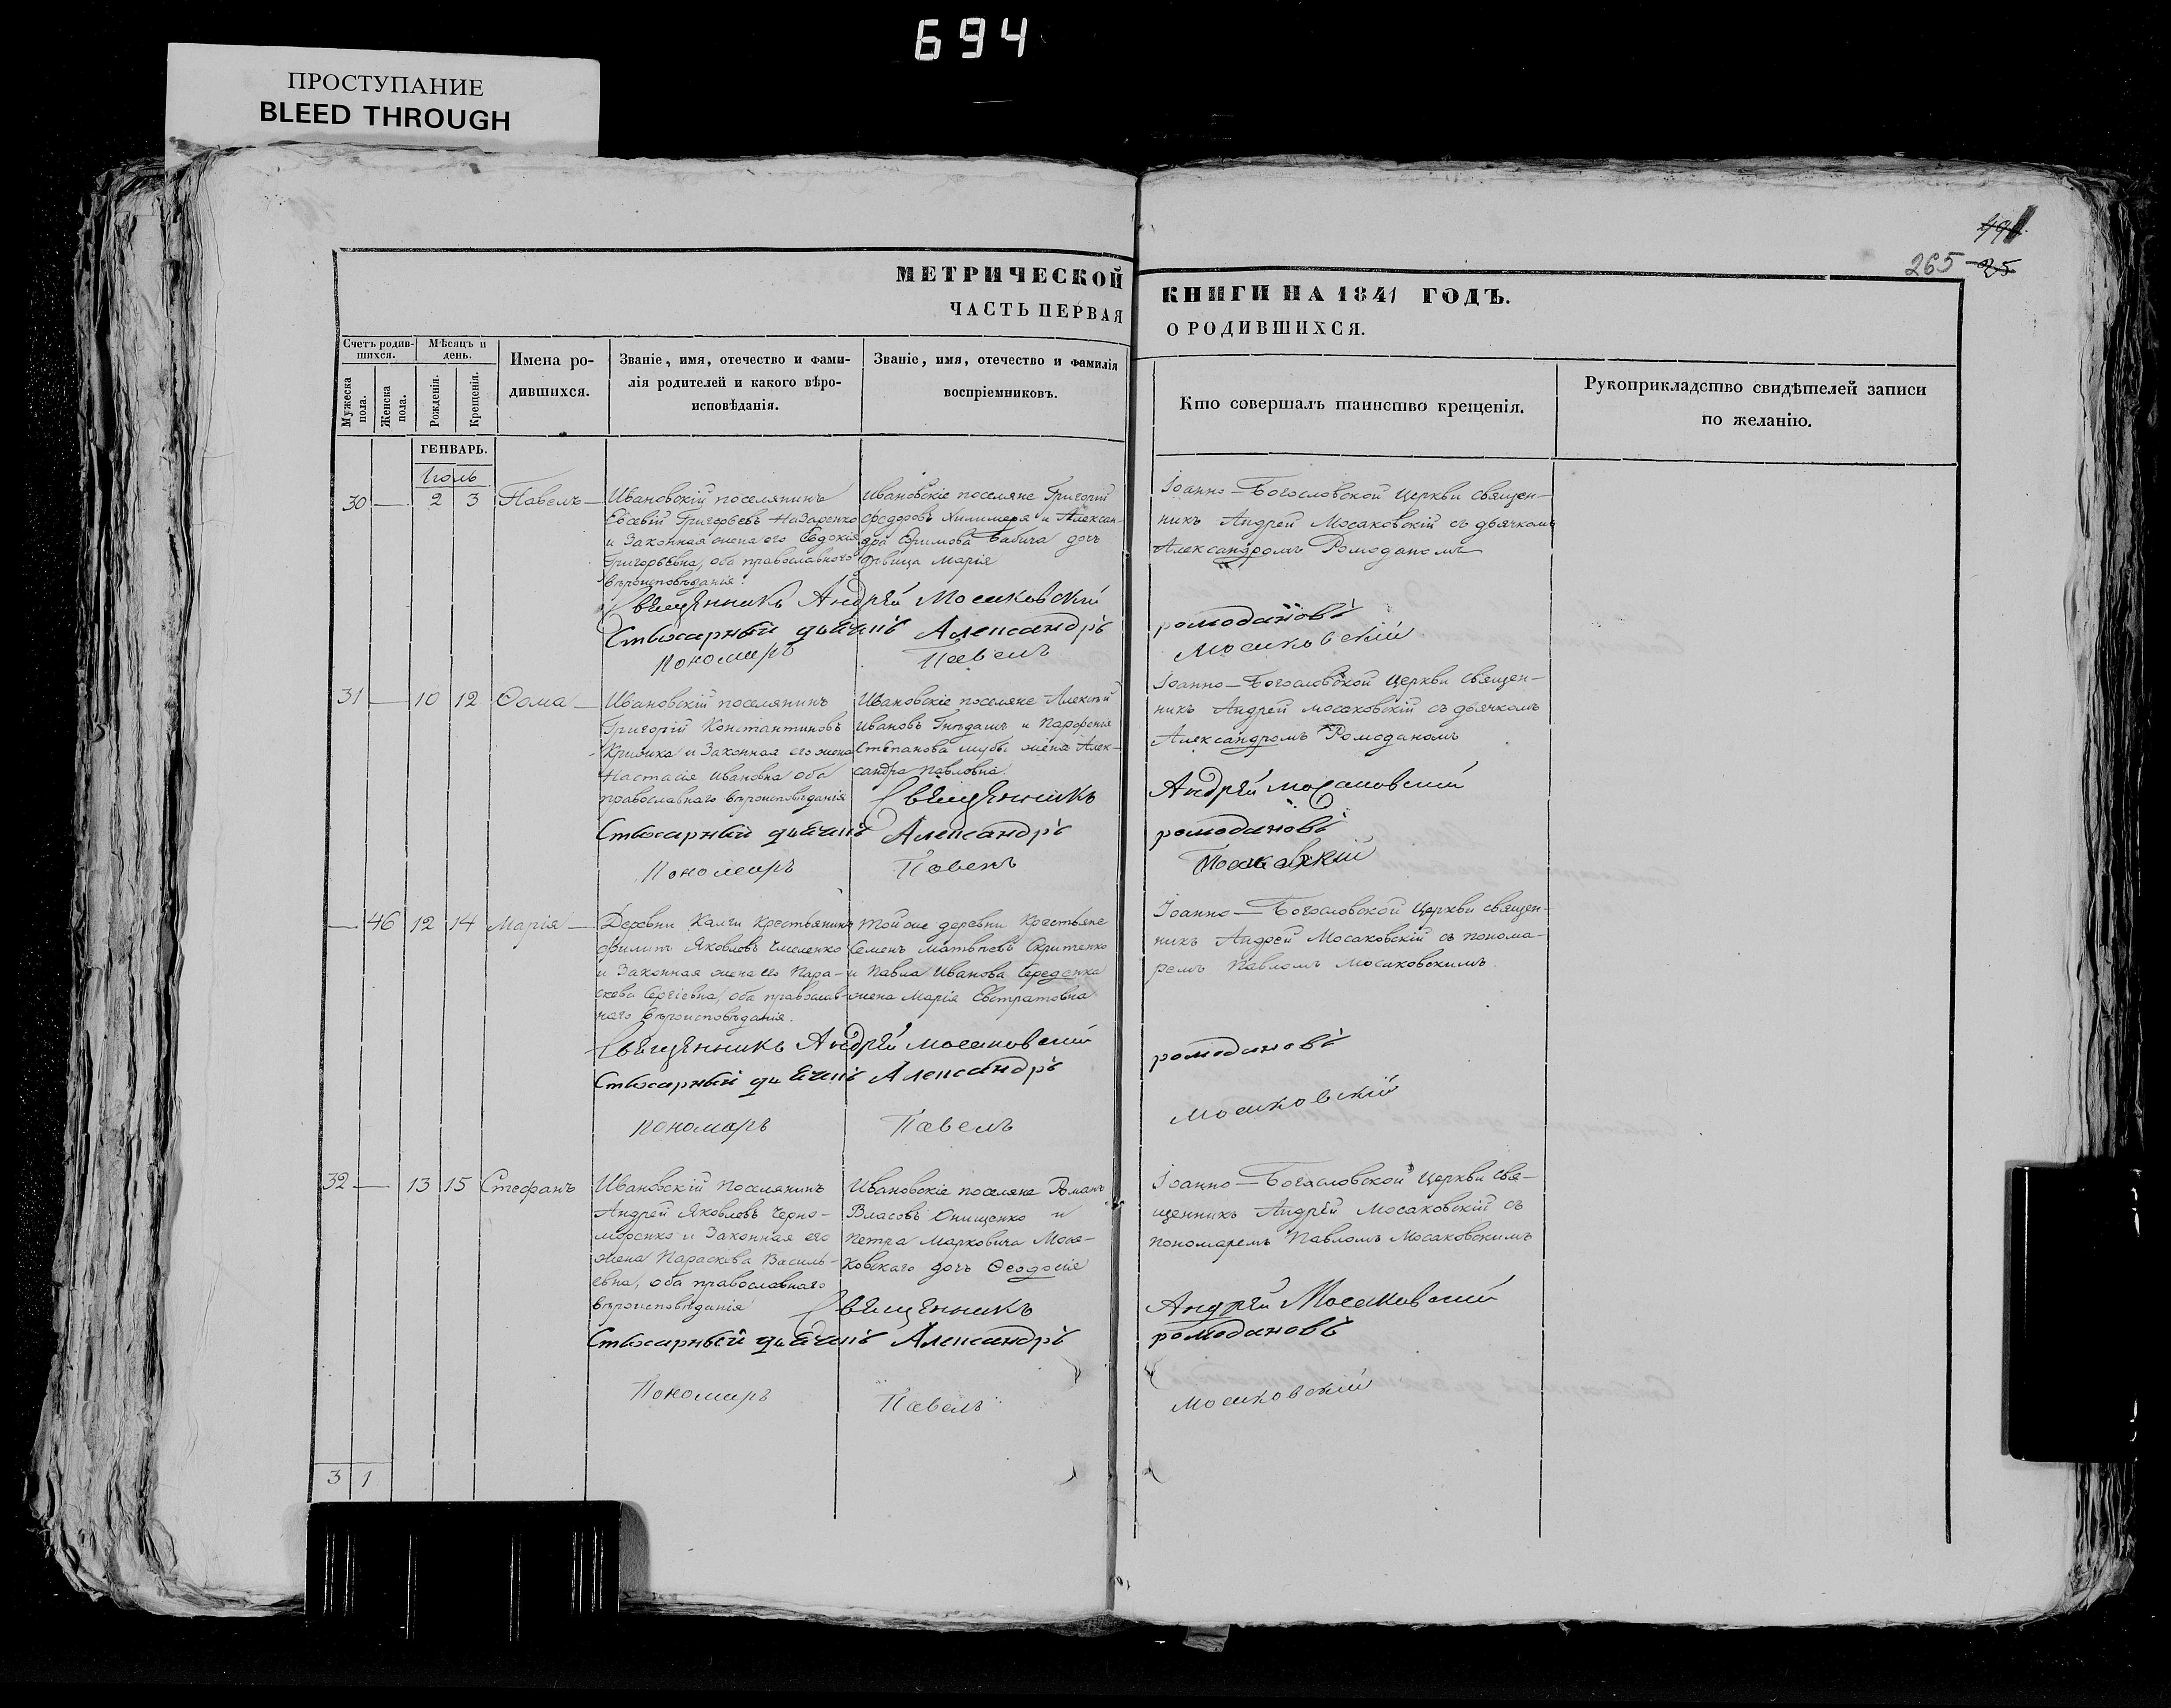 694
ПРОСТУПАНИЕ
BLEED THROUGH
265 25
МЕТРИЧЕСКОЙ КНИГИ НА 1841 ГОДЪ.
ЧАСТЬ ПЕРВАЯ О РОДИВШИХСЯ.
Счетъ родив-
шихся.
Мужеска
пола.
Женска
пола.
Мѣсяцъ и
день.
Рожденія.
Крещенія.
Имена ро-
дившихся.
Званіе, имя, отечество и фами-
лія родителей и какого вѣро-
исповѣданія.
Званіе, имя, отечество и фамилія
воспріемниковъ.
Кто совершалъ таинство крещенія.
Рукоприкладство свидѣтелей записи
по желанію.
ГЕНВАРЬ.
Іюль
30 — 2 3 Павелъ —
Ивановскій поселянинъ
Евсевій Григорьевъ Назаренко
и Законная жена его Евдокія
Григорьевна, оба православного
вѣроисповѣданія.
Ивановскіе поселяне Григорій
Федоровъ и Алексан-
дра Ефимова Бабича дочь
дѣвица Марія
Іоанно-Богословской Церкви священ-
никъ Андрей Мосаковскій съ дьячкомъ
Александромъ Ромоданомъ
Священникъ Андрей Мосаковскій
Стихарный дьячекъ Александръ ромодановъ
Пономарь Павелъ Мосаковскій
31 — 10 12 Фома —
Ивановскій поселянинъ
Григорій Константиновъ
и Законная его жена
Настасія Ивановна оба
православнаго вѣроисповѣданія
Ивановскіе поселяне Алексѣй
Ивановъ Гнѣдашъ и Парфенія
Степанова жена Алек-
сандра Павловна.
Іоанно-Богословской Церкви священ-
никъ Андрей Мосаковскій съ дьячкомъ
Александромъ Ромоданомъ
Священникъ Андрей Мосаковский
Стихарный дьячекъ Александръ ромодановъ
Пономарь Павелъ Мосаковскій
— 46 12 14 Марія —
Деревни Калги Крестьянинъ
Филипъ Яковлевъ Чмеленко
и Законная жена его Пара-
скева Сергіевна, оба православ-
наго вѣроисповѣданія.
Той же деревни Крестьяне
Семенъ Матвѣевъ Скрипенко
и Павла Иванова Середенка
жена Марія Евстратовна
Іоанно-Богословской Церкви священ-
никъ Андрей Мосаковскій съ понома-
ремъ Павломъ Мосаковскимъ.
Священникъ Андрей Мосаковский
Стихарный дьячекъ Александръ ромодановъ
Пономарь Павелъ Мосаковскій
32 — 13 15 Стефанъ
Ивановскій Поселянинъ
Андрей Яковлевъ Черно-
моренко и Законная его
жена Параскева Василь-
евна, оба православнаго
вѣроисповѣданія
Ивановскіе поселяне Романъ
Власовъ Онищенко и
Петра Марковича Моса-
ковскаго дочь Феодосія
Іоанно-Богословской Церкви свя-
щенникъ Андрей Мосаковскій съ
пономаремъ Павломъ Мосаковскимъ
Священникъ Андрей Мосаковский
Стихарный дьячекъ Александръ ромодановъ
Пономарь Павелъ Мосаковскій
3 1